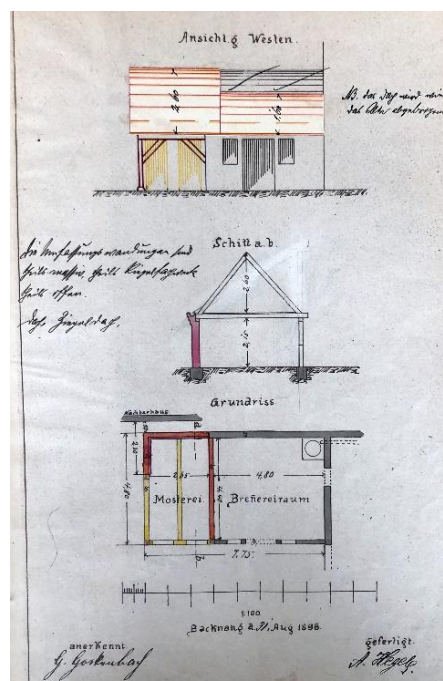 Ansicht g Westen.
2,60
1,80
NB. das Dach wird wie
das Alte abgebrochen
Schitt a.b.
Die Umfassungswandungen sind
theils massiv, theils Riegelfachwerk
theils offen.
Dach. Ziegeldach.
2,60
2,10
Grundriss
Wohnhaus
a
2,65
4,80
4,80
Mosterei.
Brennereiraum
b
7,75
1:100.
Backnang d. 31, Aug 1898.
anerkennt
gefertigt.